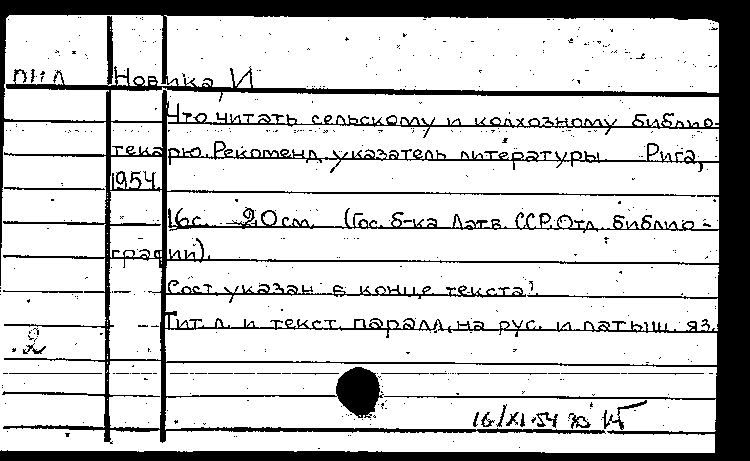 Новика, И
Что читать сельскому и колхозному библио-
текарю. Рекоменд. указатель литературы. Рига,
1954.
16с. 20см. (Гос. б-ка Латв. ССР. Отд. библио-
графии).
Сост. указан в конце текста.
Тит. л. и текст. паралл. на рус. и латыш. яз.
2
16/XI-54